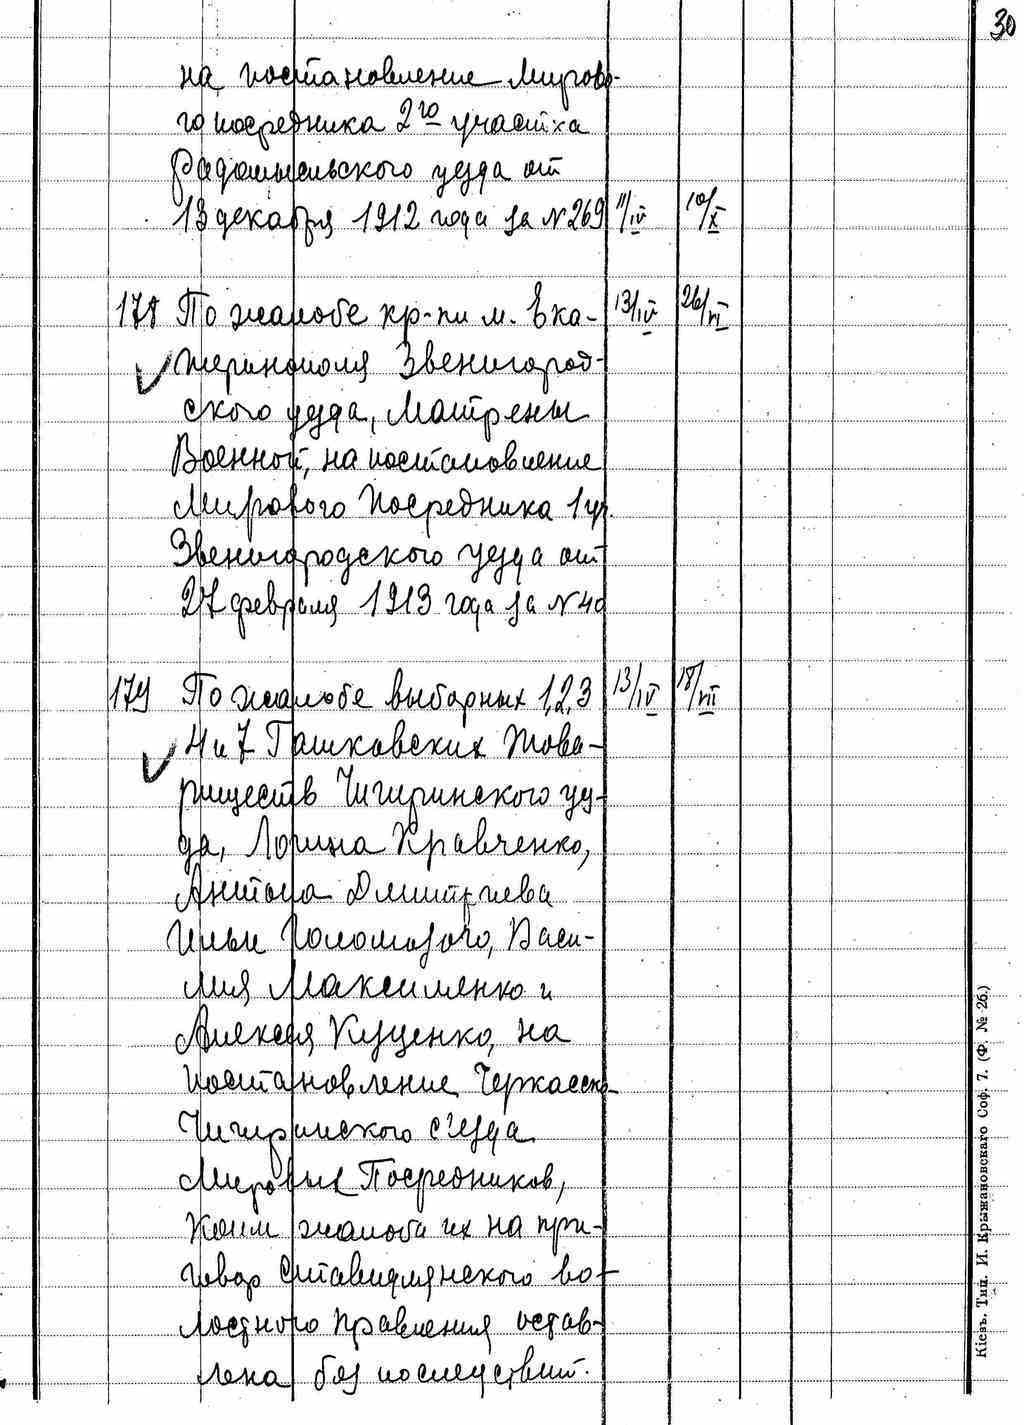 30
на постановление Мирово-
го посредника 2го участка
Радомысльского уезда от
13 декабря 1912 года за N 269 11/IV 10/X
178 По жалобе кр-ки м. Ека- 13/IV 26/VI
теринополя Звенигород-
ского уезда, Матрены
Военной, на постановление
Мирового Посредника 1 уч.
Звенигородского уезда от
27 февраля 1913 года за N 40
179 По жалобе выборных 1,2,3 13/IV 18/VII
4 и 7 Ташковских това-
риществ Чигиринского уез-
да, Логина Кравченко,
Антона Дмитриева
Ильи Голомозого, Васи-
лия Максименко и
Алексея Куценко, на
постановление Черкасско-
Чигиринского съезда
Мировых Посредников,
коим жалоба их на при-
говор Ставидлянского во-
лостного правления остав-
лена без последствий.
Кіевъ. Тип. И. Крыжановскаго Соф. 7. (Ф. № 26.)